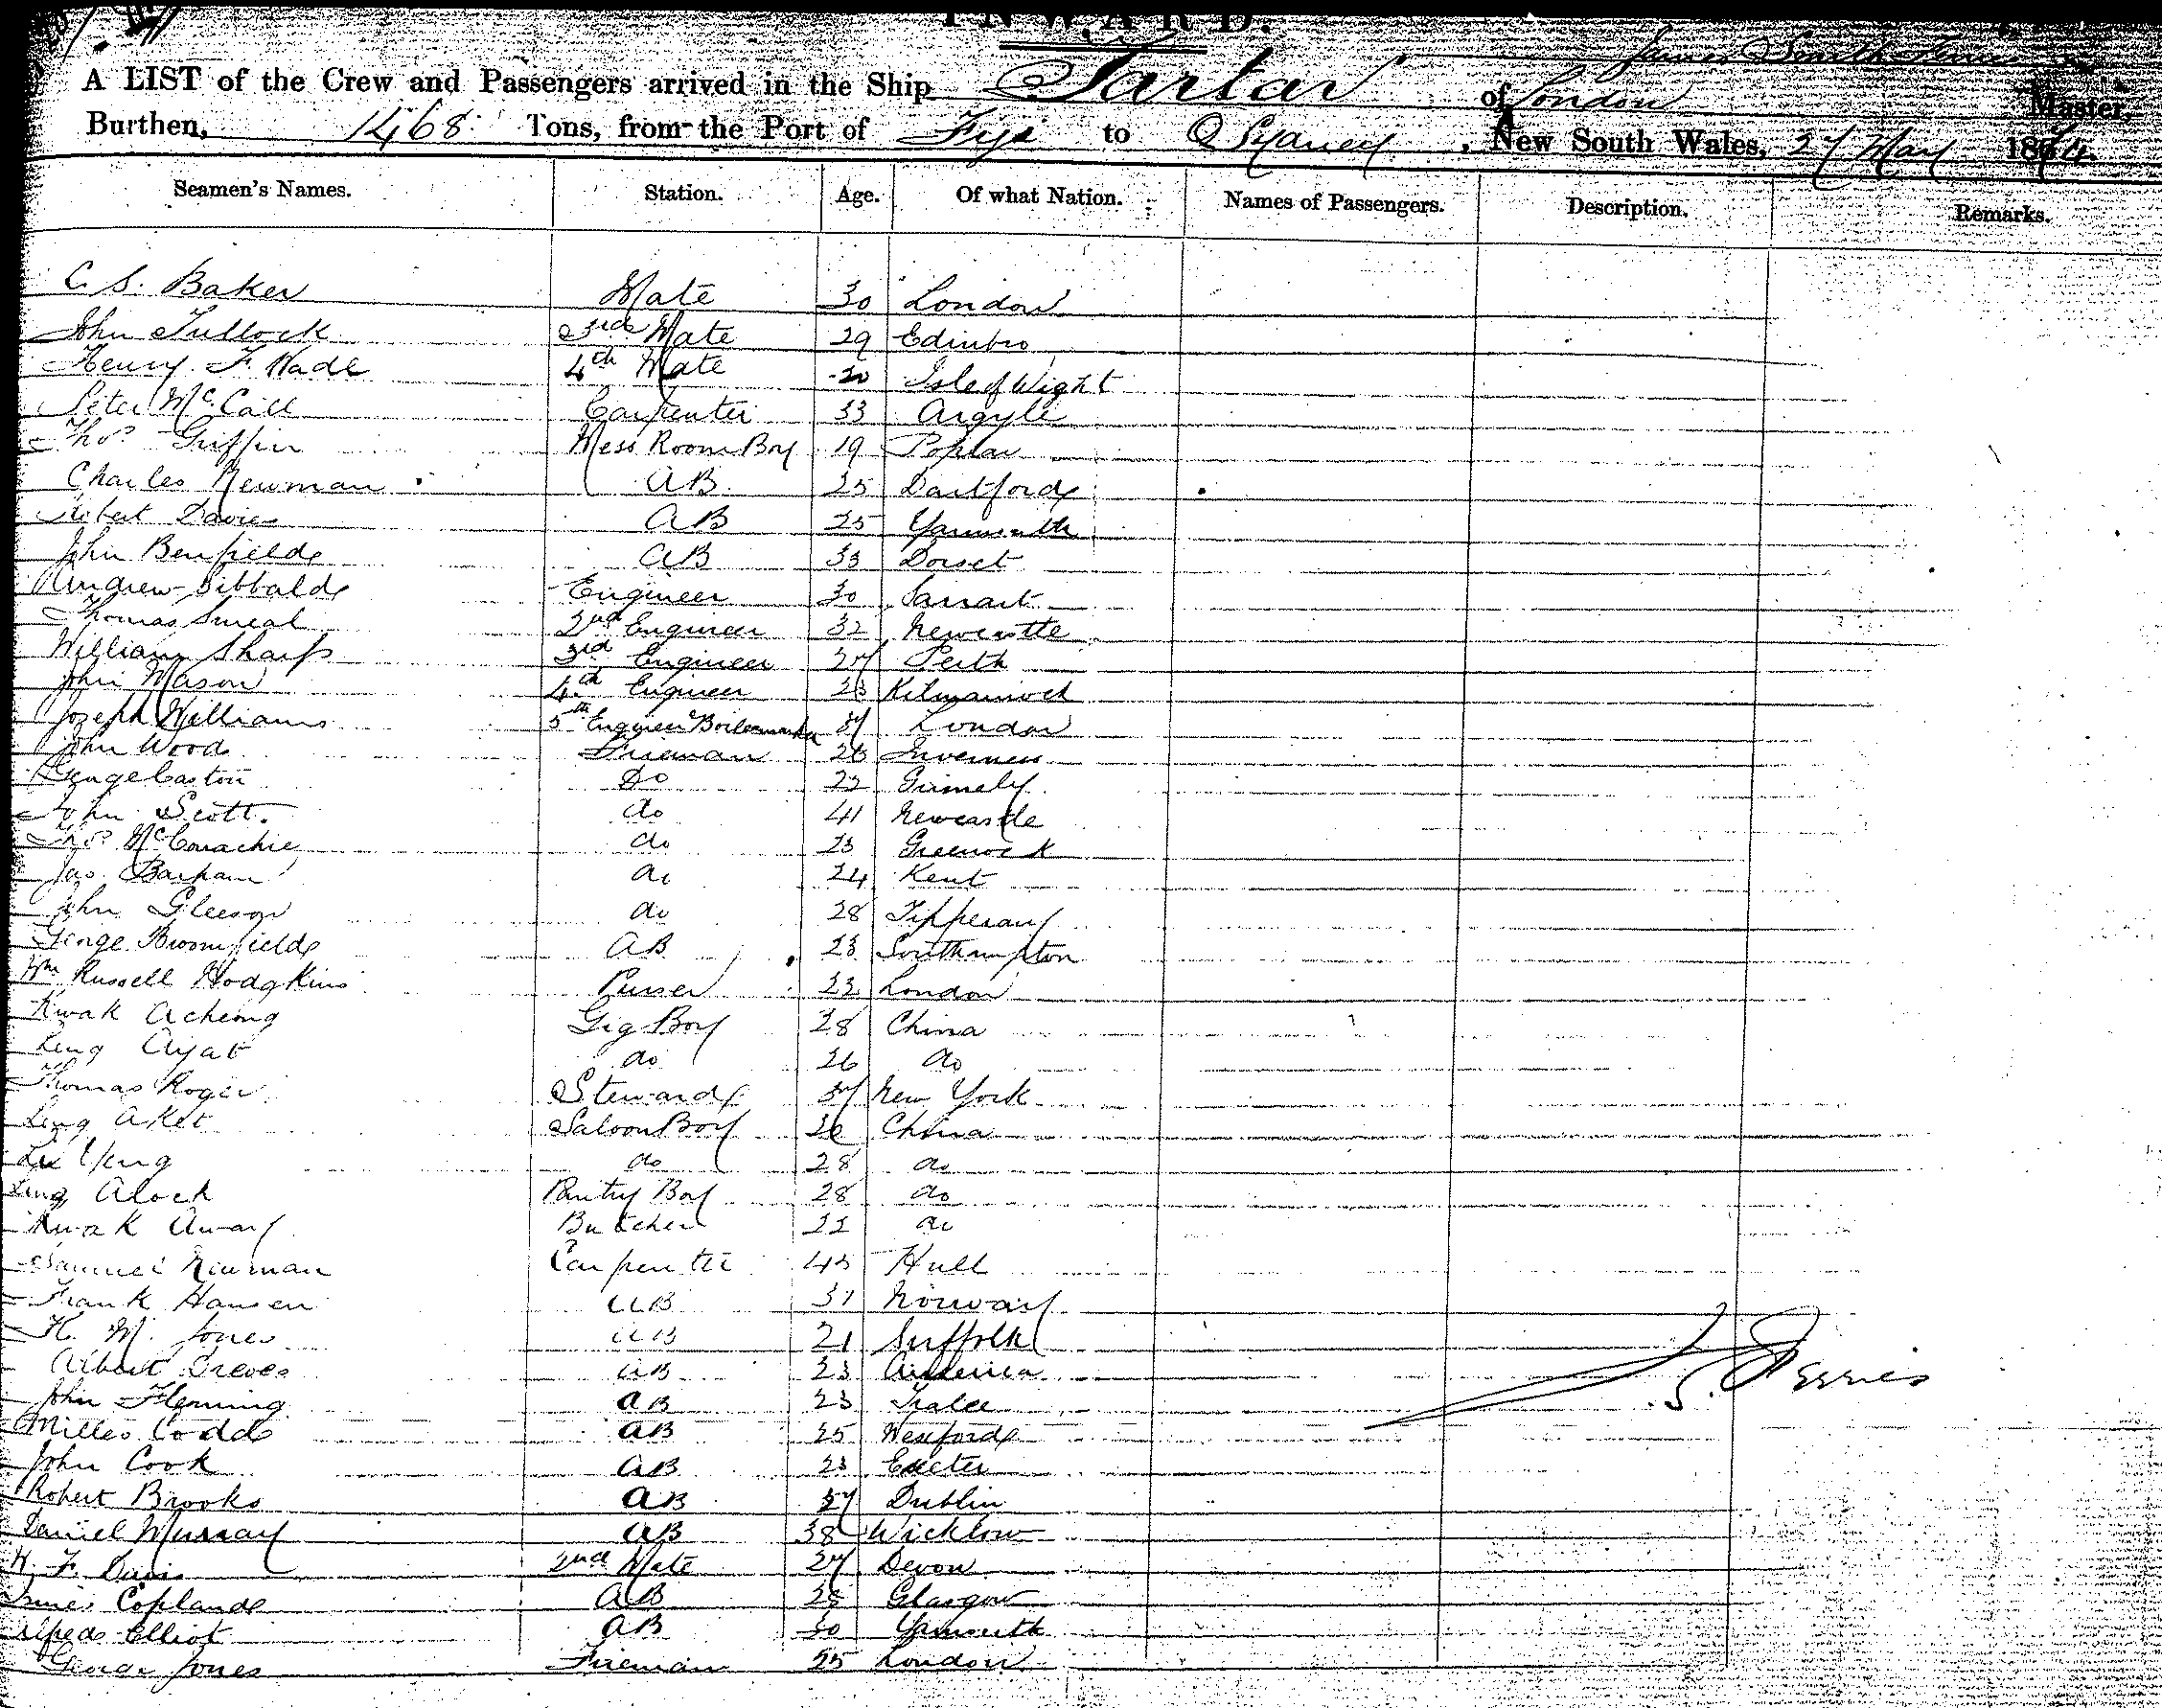 INWARD.
James Smith Ferries
A LIST of the Crew and Passengers arrived in the Ship Tartar of London Master,
Burthen, 1468 Tons, from the Port of Fiji to Sydney, New South Wales, 27 May 187
Seamen's Names. Station. Age. Of what Nation. Names of Passengers. Description. Remarks.
C. S. Baker Mate 30 London
John Tullock 3rd Mate 29 Edinbro
Henry F. Wade 4th Mate 20 Isle of Wight
Peter McCall Carpenter 33 Argyle
Thos Griffin Mess Room Boy 19 Poplar
Charles Newman AB 25 Dartford
Robert Davies AB 25 Yarmouth
John Benfield AB 33 Dorset
Andrew Sibbald Engineer 30
Thomas Smeal 2nd Engineer 32 Newcastle
William Sharp 3rd Engineer 27 Perth
John Mason 4th Engineer 23 Kilmarnock
Joseph Williams 5th Engineer & Boilermaker 37 London
John Wood Fireman 26 Inverness
George Caston Do 22
John Scott. do 41 Newcastle
Thos do 23 Greenock
Jas. Barham do 24 Kent
John Gleeson do 28 Tipperary
George Broomfield AB 23 Southampton
Wm Russell Hodgkins Purser 22 London
Kwak Acheong Gig Boy 28 China
Leng Ayat do 26 do
Thomas Roger Steward 37 New York
Leng Aket Saloon Boy China
do 28 do
Leng Alock Pantry Boy 28 do
Kwak Away Butcher 22 do
Samuel Newman Carpenter 45 Hull
Frank Hansen AB 31 Norway
H. M. Jones AB 21 Suffolk
Albert Greves AB 23 America
John Fleming AB 23 Tralee
J. S. Ferries
Milles Codd AB 25 Wexford
John Cook AB 23 Exeter
Robert Brooks AB 37 Dublin
Daniel Murray AB 38 Wicklow
W. F. Davis 2nd Mate 27 Devon
James Copland AB 28 Glasgow
Alfred Elliot AB 30 Yarmouth
George Jones Fireman 25 London